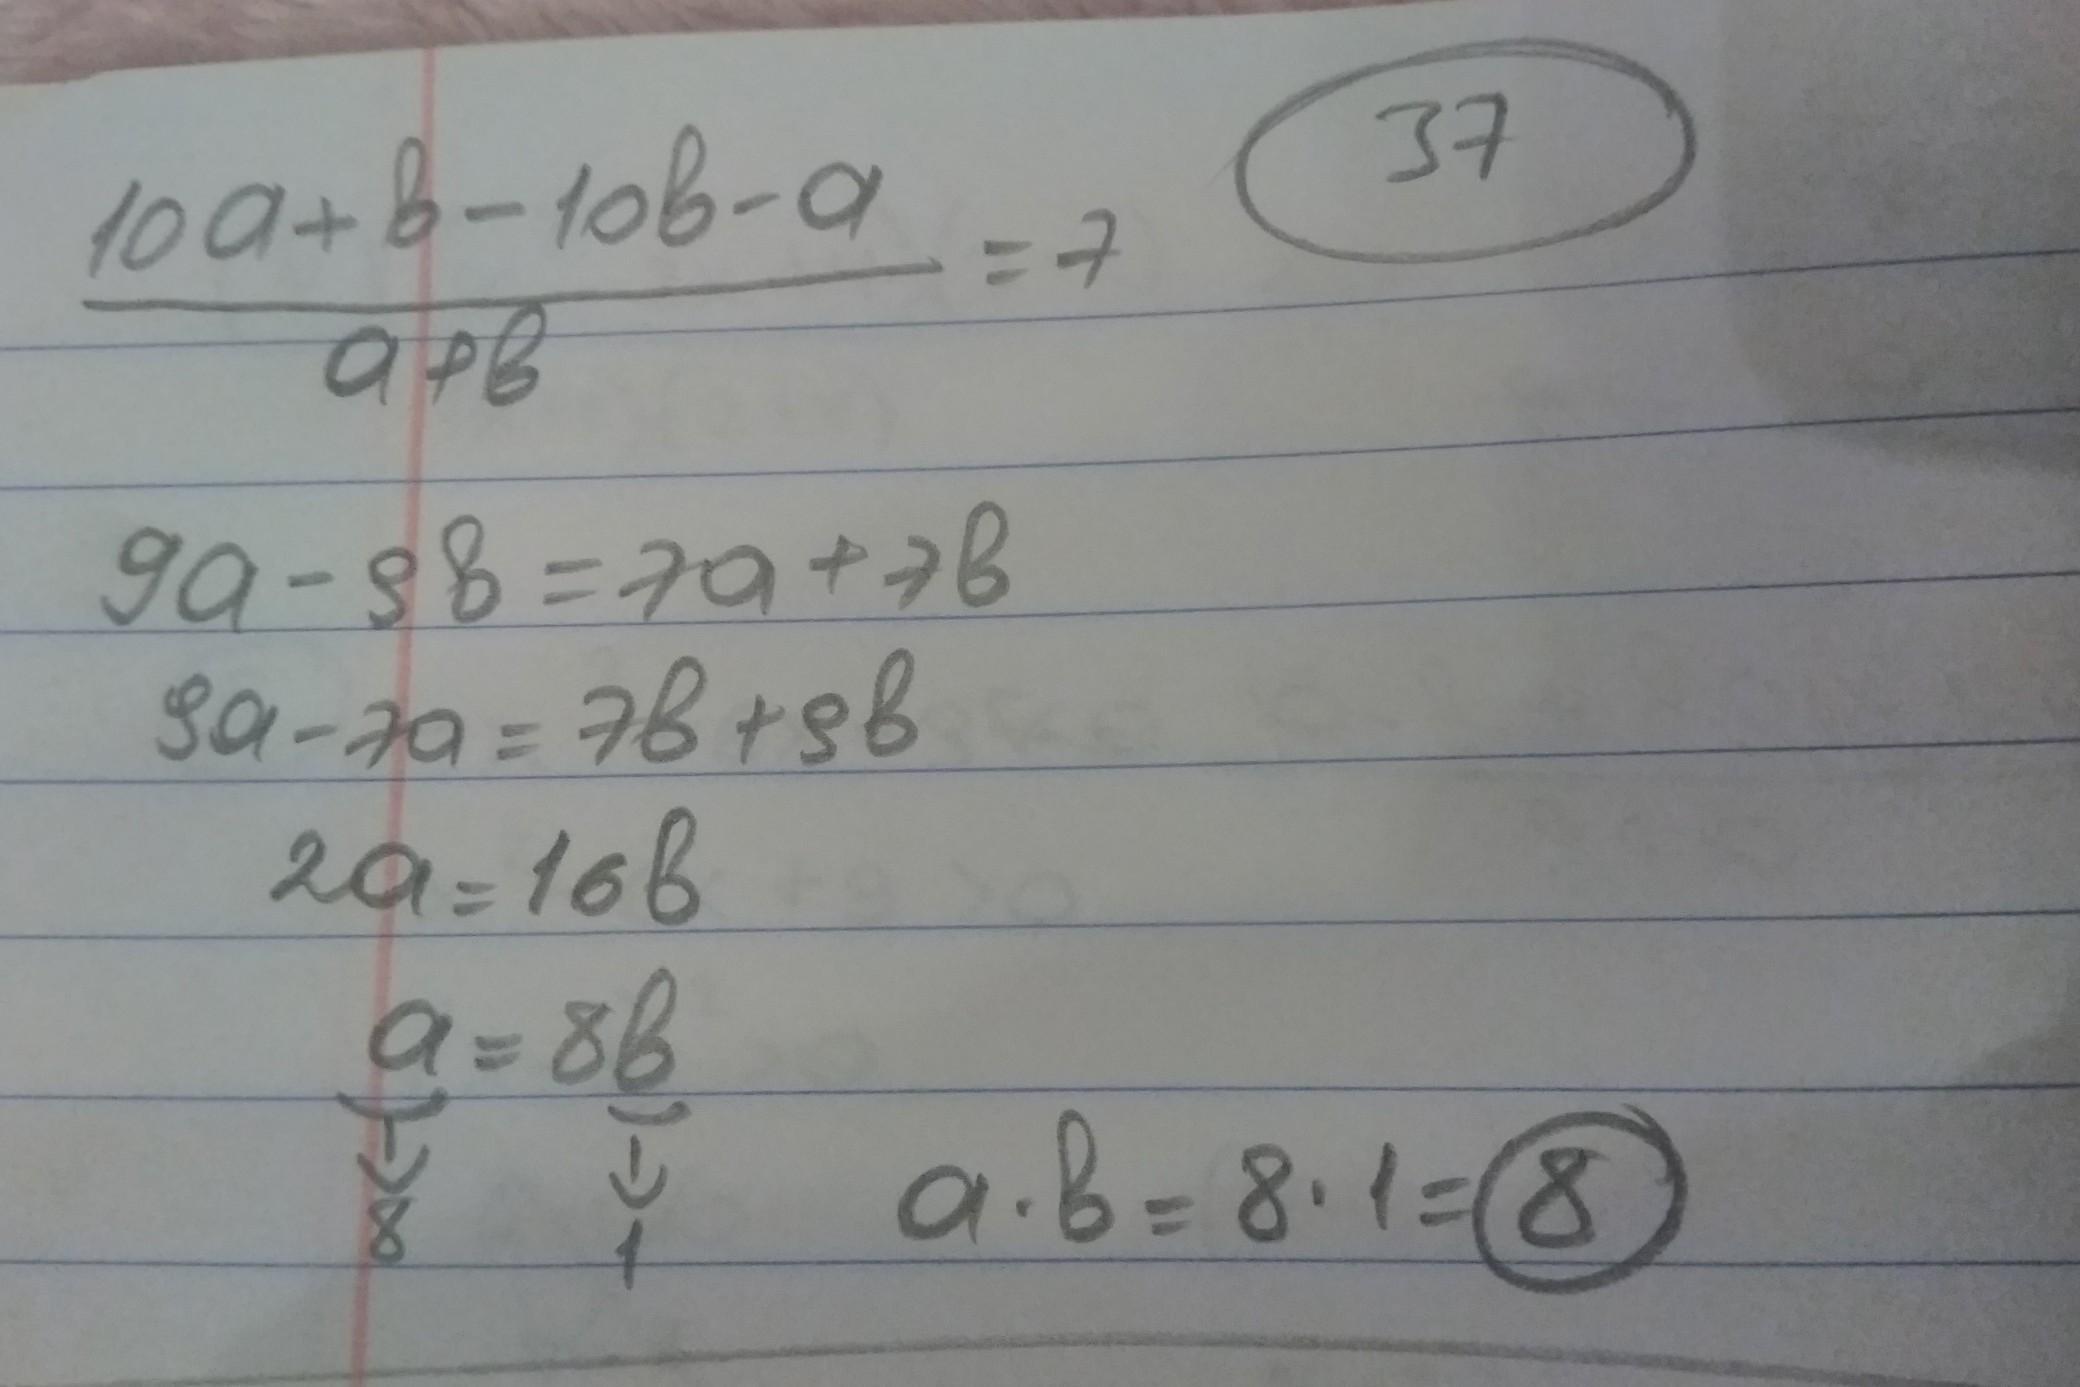 37
10a+b-10b-a
= 7
a+b
9a-9b=7a+7b
9a-7a=7b+9b
2a=16b
a=8b
8 1
a·b=8·1=8